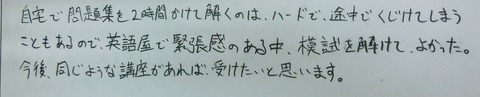 自宅で問題集を2時間かけて解くのは、ハードで、途中でくじけてしまう
こともあるので、英語屋で緊張感のある中、模試を解けて、よかった。
今後、同じような講座があれば、受けたいと思います。